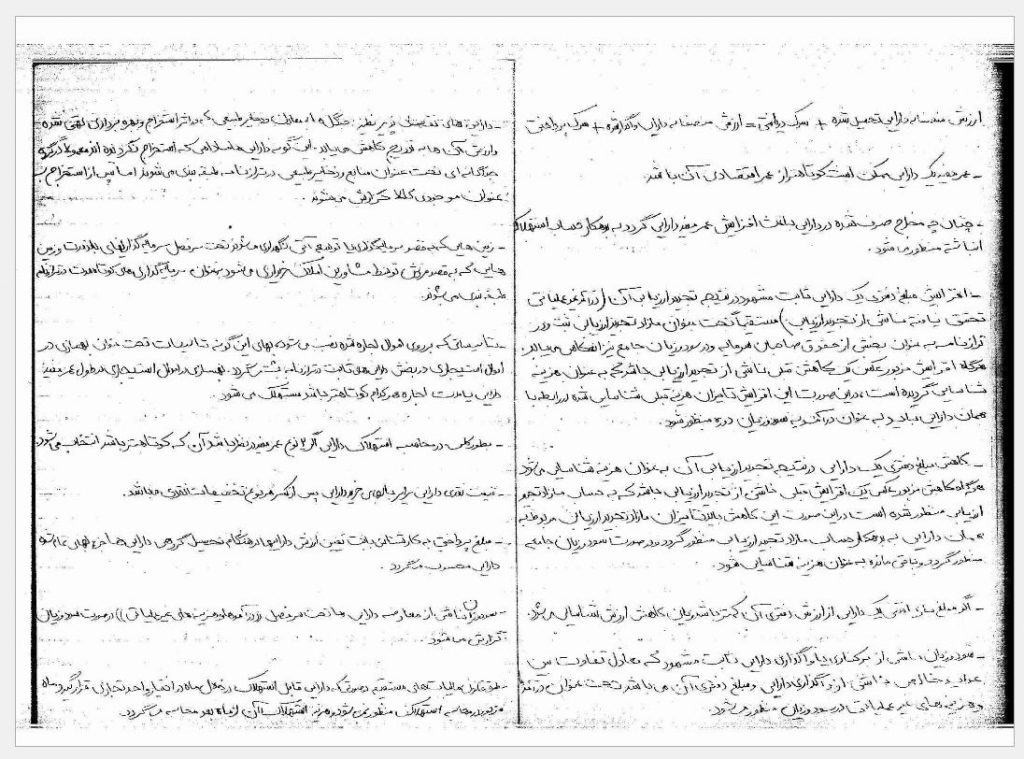 ارزش منصفانه دارایی تحصیل شده + سرک دریافتی = ارزش منصفانه دارایی واگذار شده + سرک پرداختی
- عمر مفید یک دارایی ممکن است کوتاهتر از عمر اقتصادی آن باشد.
- چنان چه مخارج صرف شده در دارایی باعث افزایش عمر مفید دارایی گردد به بدهکار حساب استهلاک
انباشته منظور می شود.
- افزایش مبلغ دفتری یک دارایی ثابت مشهود در نتیجه تجدید ارزیابی آن (درآمد غیر عملیاتی
تحقق نیافته ناشی از تجدید ارزیابی) مستقیماً تحت عنوان مازاد تجدید ارزیابی ثبت و در
ترازنامه به عنوان بخشی از حقوق صاحبان سرمایه و در سود و زیان جامع نیز انعکاس می یابد.
هرگاه افزایش مزبور عکس یک کاهش قبلی ناشی از تجدید ارزیابی باشد که به عنوان هزینه
شناسایی گردیده است، در این صورت این افزایش تا میزان هزینه قبلی شناسایی شده در رابطه با
همان دارایی باید به عنوان درآمد به سود و زیان دوره منظور شود.
- کاهش مبلغ دفتری یک دارایی در نتیجه تجدید ارزیابی آن به عنوان هزینه شناسایی می شود
هرگاه کاهش مزبور عکس یک افزایش قبلی ناشی از تجدید ارزیابی باشد که به حساب مازاد تجدید
ارزیابی منظور شده است در این صورت این کاهش باید تا میزان مازاد تجدید ارزیابی مربوط به
همان دارایی به بدهکار حساب مازاد تجدید ارزیابی منظور گردد و در صورت سود و زیان جامع
منظور گردد و باقی مانده به عنوان هزینه شناسایی شود.
- اگر مبلغ بازیافتنی یک دارایی از ارزش دفتری آن کمتر باشد زیان کاهش ارزش شناسایی می شود.
- سود و زیان ناشی از برکناری یا واگذاری دارایی ثابت مشهود که معادل تفاوت بین
عواید خالص ناشی از واگذاری دارایی و مبلغ دفتری آن می باشد تحت عنوان درآمد
و هزینه های غیر عملیاتی در سود و زیان منظور می شود.
- دارایی های نقصان پذیر نظیر: جنگل ها، معادن و ذخایر طبیعی که در اثر استخراج و بهره برداری تهی شده
و ارزش آن ها به تدریج کاهش می یابد. این گونه دارایی ها مادامی که استخراج نگردیده اند معمولاً در گروه
جداگانه ای تحت عنوان منابع و ذخایر طبیعی در ترازنامه طبقه بندی می شوند اما پس از استخراج به
عنوان موجودی کالا گزارش می شوند.
- زمین هایی که به قصد سرمایه گذاری یا توسعه آتی نگهداری می شوند تحت سرفصل سرمایه گذاریهای بلندمدت و زمین
هایی که به قصد فروش توسط مشاورین املاک خریداری می شود به عنوان سرمایه گذاری های کوتاه مدت در ترازنامه
طبقه بندی می شوند.
- تاسیساتی که بر روی اموال اجاره شده نصب می شود، بهای این گونه تاسیسات تحت عنوان بهسازی در
اموال استیجاری در بخش دارایی های ثابت در ترازنامه ثبت می گردد. بهسازی در اموال استیجاری در طول عمر مفید
دارایی یا مدت اجاره هر کدام کوتاهتر باشد مستهلک می شود.
- بطور کلی در محاسبه استهلاک دارایی اگر ۲ نوع عمر مفید در نظر باشد آن که کوتاهتر باشد انتخاب می شود.
- قیمت نقدی دارایی برابر بهای خرید دارایی پس از کسر هر نوع تخفیفات نقدی می باشد.
- مبلغ پرداختی به کارشناس بابت تعیین ارزش دارایی ها در هنگام تحصیل گروهی دارایی ها جزء بهای تمام شده
دارایی محسوب می گردد.
- سود و زیان ناشی از معاوضه دارایی ها تحت سرفصل (درآمدها و هزینه های غیر عملیاتی) در صورت سود و زیان
گزارش می شود.
- طبق قانون مالیات های مستقیم در صورتی که دارایی قابل استهلاک در خلال ماه در اختیار واحد تجاری قرار گیرد ماه
مزبور در محاسبه استهلاک منظور نمی شود و هزینه استهلاک آن از ماه بعد محاسبه می گردد.